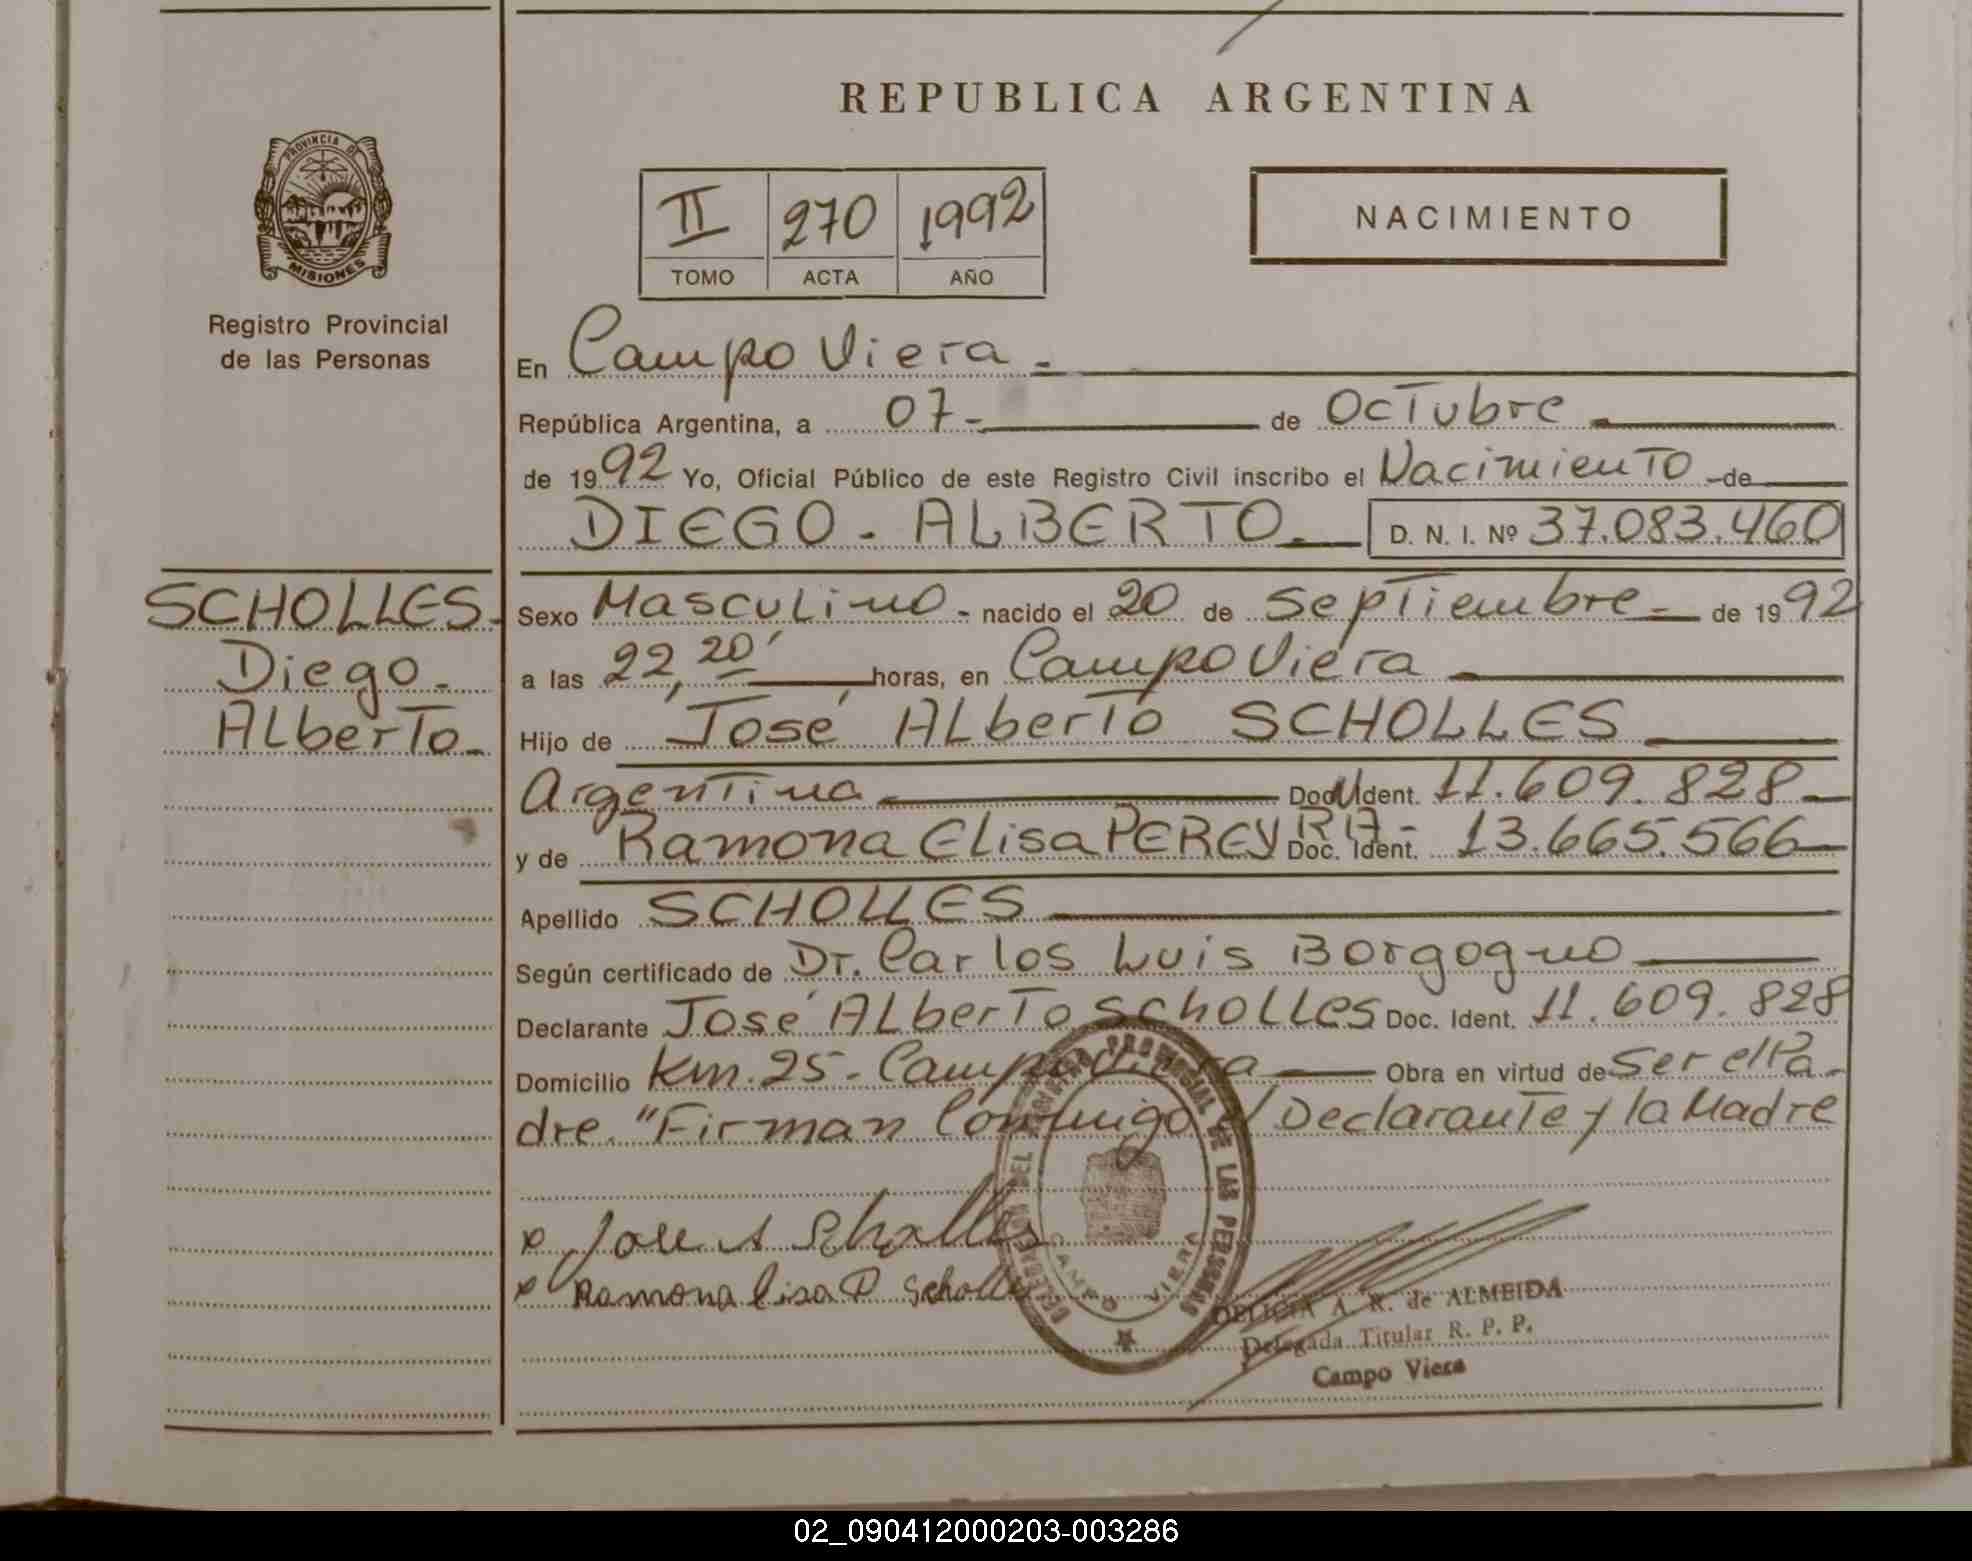 REPUBLICA ARGENTINA
PROVINCIA DE
MISIONES
Registro Provincial
de las Personas
II 270 1992
TOMO ACTA AÑO
NACIMIENTO
En Campo Viera.-
República Argentina, a 07- de Octubre
de 1992 Yo, Oficial Público de este Registro Civil inscribo el Nacimiento -de
DIEGO - ALBERTO. D. N. I. Nº 37.083.460
SCHOLLES-
Diego-
Alberto-
Sexo Masculino - nacido el 20 de septiembre - de 1992
a las 22,20' horas, en Campo Viera
Hijo de José Alberto SCHOLLES
Argentina Doc. Ident. 11.609.828
y de Ramona Elisa PEREYRA - Doc. Ident. 13.665.566
Apellido SCHOLLES
Según certificado de Dr. Carlos Luis Borgogno
Declarante José Alberto scholles Doc. Ident. 11.609.828
Domicilio Km. 25- Campo Viera Obra en virtud de ser el Pa-
dre. "Firman Conmigo el Declarante y la Madre
x Jose A Scholles
x Ramona lisa P Scholles
DELEGACION DEL REGISTRO PROVINCIAL DE LAS PERSONAS
CAMPO VIERA
DELICIA A. R. de ALMEIDA
Delegada Titular R. P. P.
Campo Viera
02_090412000203-003286